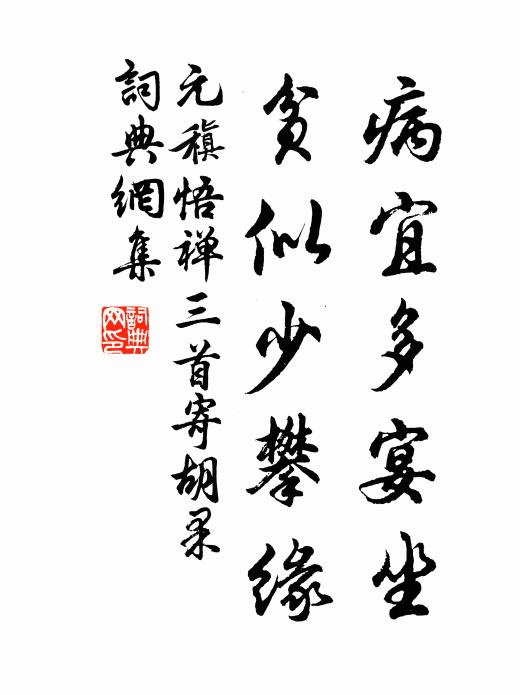 病宜多宴坐
貧似少攀緣
元稹悟禅三首寄胡果
詞典網集
詞典网印